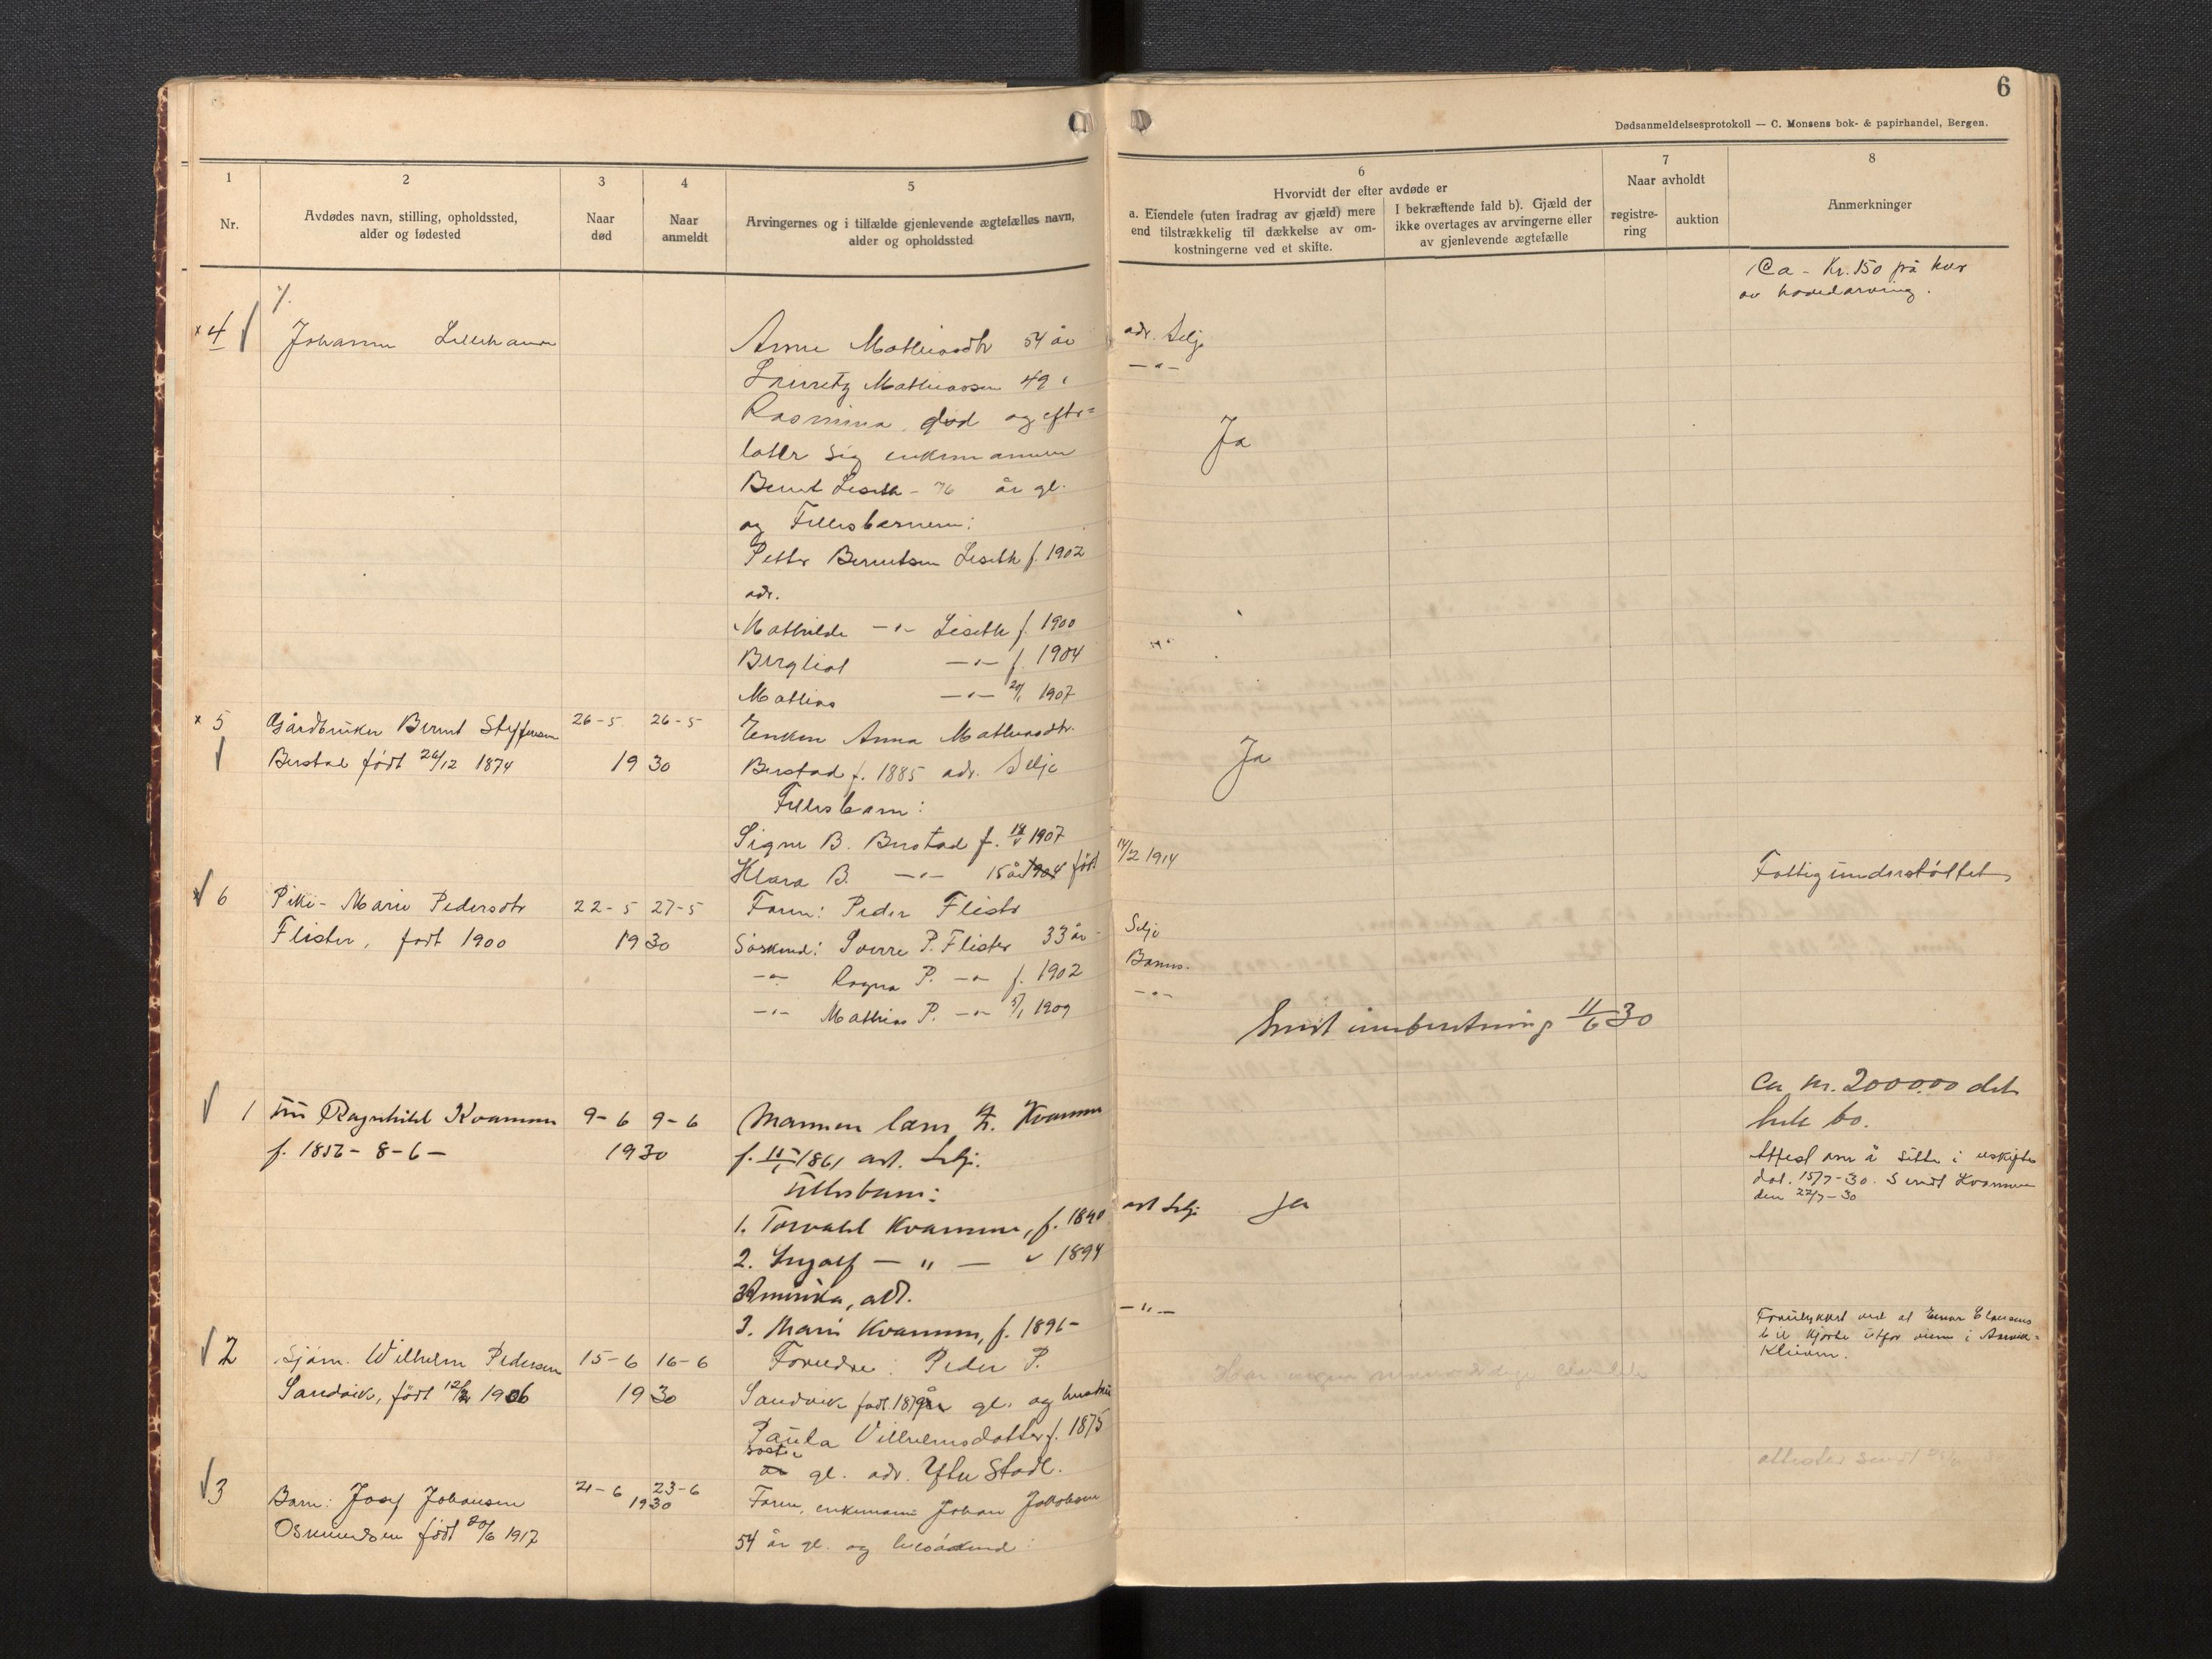 6
Dødsanmeldelsesprotokoll — C. Monsens bok- & papirhandel, Bergen.
1
Nr.
2
Avdødes navn, stilling, opholdssted,
alder og fødested
3
Naar
død
4
Naar
anmeldt
5
Arvingernes og i tilfælde gjenlevende ægtefælles navn,
alder og opholdssted
6
Hvorvidt der efter avdøde er
a. Eiendele (uten fradrag av gjæld) mere
end tilstrækkelig til dækkelse av om-
kostningerne ved et skifte.
I bekræftende fald b). Gjæld der
ikke overtages av arvingerne eller
av gjenlevende ægtefælle
7
Naar avholdt
registre-
ring
auktion
8
Anmerkninger
Ca - Kr. 150 på hver
av hovedarving.
x 4 Johanne
Anne Mathiasdtr 54 år adr. Selje
Lauretz Mathiassen 49 " — " —
Rasmina død og efter=
later sig enkemannen
Ja
Bernt Liseth - 76 år gl.
og Fellesbarnene:
Petter Berntsen Liseth f. 1902
adr.
Mathilde — " — Liseth f. 1900
Bergliot — " — f. 1904
Mathias — " — 1907
x 5 Gårdbruker Bernt Steffensen 26-5 26-5 Enken Anna Mathiasdtr.
Berstad født 26/12 1874 1930 Berstad f. 1885 adr. Selje Ja
Fellesbarn:
Signe B. Berstad f. 1907
Klara B. — " — 15 år 1904 født 14/2 1914
Fattigunderstøttet
6 Pike - Marie Pedersdtr 22-5 27-5 Faren: Peder Flister
Flister, født 1900 1930 Søskend: Sverre P. Flister 33 år - Selje
— " — Ragna P. — " — f. 1902
— " — Mathias P. — " — 1909 — " —
Sendt innberetning 11/6 30
Ca kr. 20000,00 det
hele bo.
1 Fru Ragnhild Kvamme 9-6 9-6 Mannen lærer Kvamme
f. 1856 - 8-6 — 1930 f. 1861 adr. Selje.
Attest om å sitte i uskiftet
dat. 15/7-30. Sendt Kvamme
den 22/7-30
Fellesbarn:
1. Torvald Kvamme, f. 1890 adr Selje Ja
2. Ingolf — " — " 1894
Amerika, adr.
3. Marie Kvamme, f. 1896 - — " —
Forulykket ved at Einar
bil kjørte utfor veien i
Kleiven.
2 Sjøm. Wilhelm Pedersen 15-6 16-6 Foreldre: Peder P.
Sandvik, født 1906 1930 Sandvik født 1879 år gl. og hustru
Paula Vilhelmsdatter f. 1875
år gl. adr. Ytre Stadt.
attester sendt
3 Barn: Josef Johansen 21-6 23-6 Faren, enkemann Johan Jakobsen
Osmundsen født 20/6 1917 1930
54 år gl. og helsøskend: